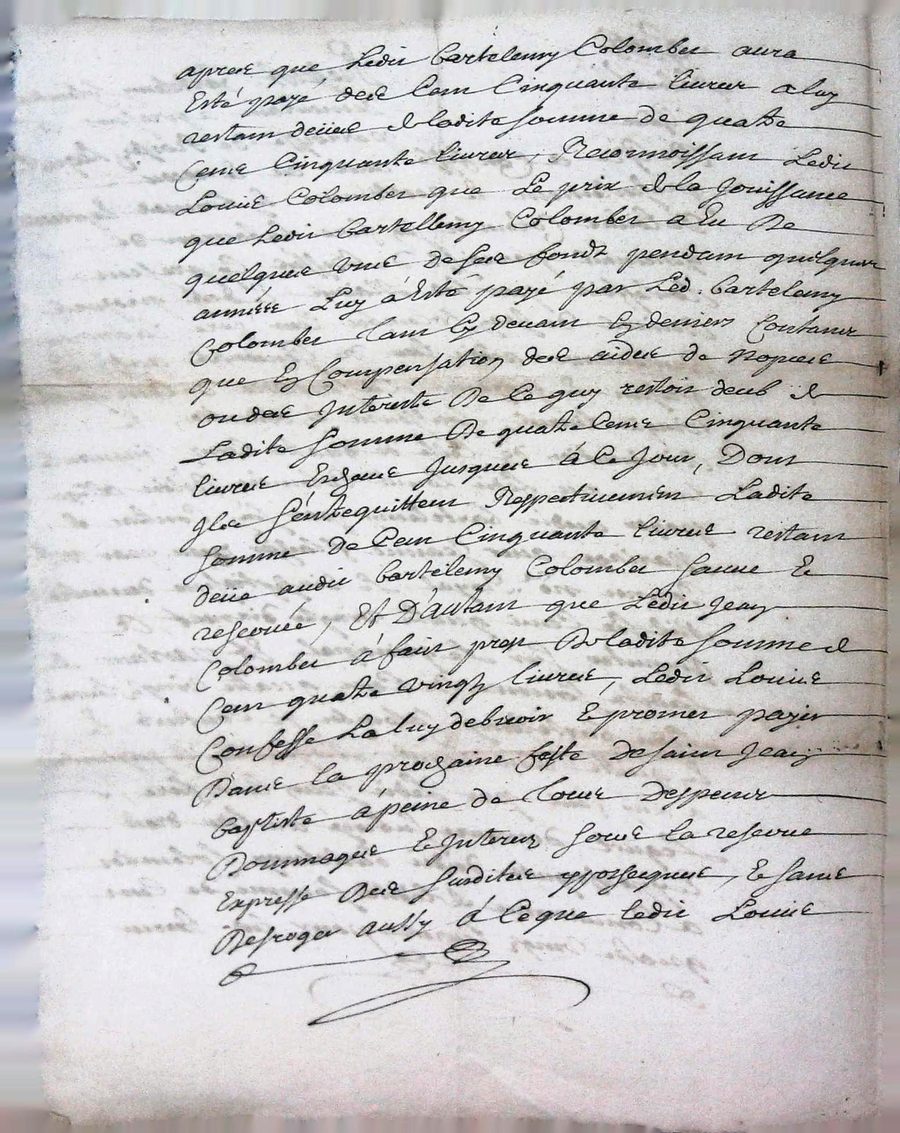 apres que Ledit bartelemy Colomber aura
Esté payé des Cent Cinquante livres a luy
restant deües de ladite somme de quatre
Cens Cinquante livres, Reconnoissant Ledit
Louis Colomber que Le prix de la Jouissance
que Ledit bartellemy Colomber a Eu De
quelques uns de ses fondz pendant quelques
années Luy à Esté payé par Led. bartelemy
Colomber tant Cy devant En deniers Contans
que En Compensation des aides de nopces
ou des Interests De Ce quy restoit deub de
Ladite somme De quatre Cens Cinquante
livres Jusques à Ce Jour, Dont
Ils s'entrequittent Respectivement Ladite
somme de Cent Cinquante livres restant
deüe audit bartelemy Colomber sauve Et
reservée, Et D'autant que Ledit Jean
Colomber à fait De ladite somme de
Cent quatre vingtz livres, Ledit Louis
Confesse La luy debvoir E promet payer
Dans la prochaine feste De saint Jean
baptiste à peine de tous Despens
Dommages Et Interets sous la reserve
Expresse Des susdites ypotheques, Et sans
Desroger aussy à Ce que ledit Louis